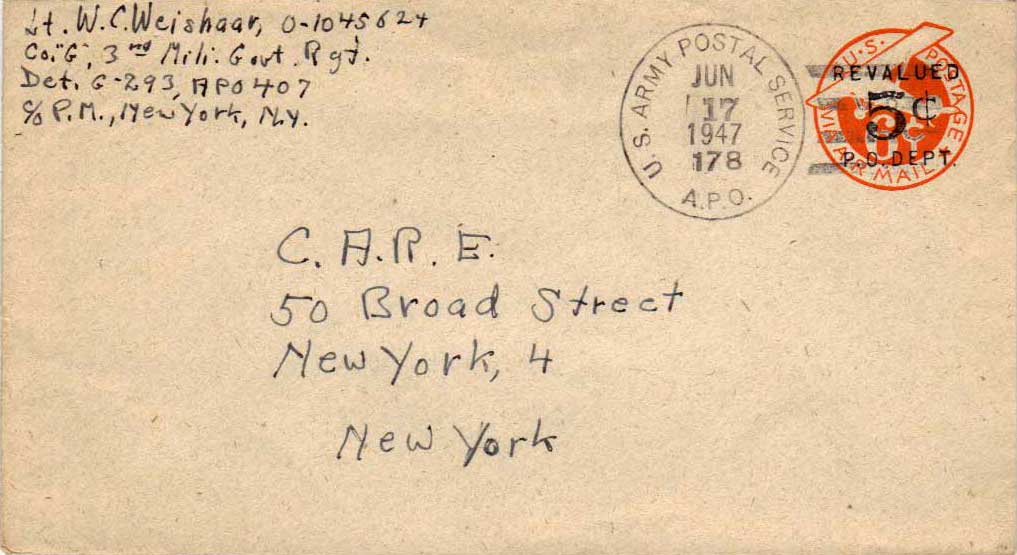 Lt. W. C. Weishaar, O-1045624
Co. "G", 3rd Mili. Govt. Rgt.
Det. G-293, APO 407
c/o P. M., New York, N.Y.
U. S. ARMY POSTAL SERVICE
JUN
17
1947
178
A.P.O.
U.S. POSTAGE
REVALUED
5¢
P.O. DEPT.
VIA AIR MAIL
C. A. R. E.
50 Broad Street
New York, 4
New York